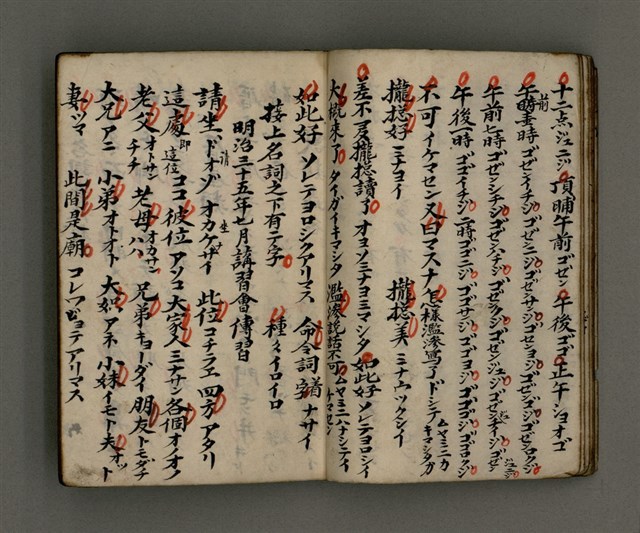 十二点ジュニジ 頂晡午前ゴゼン 午後ゴゴ 正午ショオゴ
午前壹時ゴゼンイチジ ゴゼンニジ ゴゼンサンジ ゴゼンヨジ ゴゼンゴジ ゴゼンロクジ
午前七時ゴゼンシチジ ゴゼンハチジ ゴゼンクジ ゴゼンジュジ
午後一時ゴゴイチジ 二時ゴゴニジ ゴゴサンジ ゴゴヨジ ゴゴゴジ ゴゴロクジ
不可イケマセン 又曰マスナ 怎樣濫滲寫了ドシテ ムヤミニカキマシタカ
攏捴好ミナヨイ 攏捴美ミナウツクシイ
差不多攏捴讀了オヨソミナヨミマシタ 如此好ソレテヨロシイ
大概来了タイガイキマシタ 濫滲說話不可ムヤミニハナシテイケマセン
如此好ソレテヨロシクアリマス 命令詞着字ナサイ
接上名詞之下有ニ字 種々イロイロ
明治三十五年七月講習會傳習
請生ドオゾ オカケナサイ 此位コチラエ 四方アタリ
這處即這位ココ 彼位アソコ 大家人ミナサン 各個オノオノ
老父オトサンチチ 老母オカサンハハ 兄弟キョーダイ 朋友トモダチ
大兄アニ 小弟オトオト 大姉アネ 小妹イモト 夫オット
妻ツマ 此間是廟コレワビョテアリマス